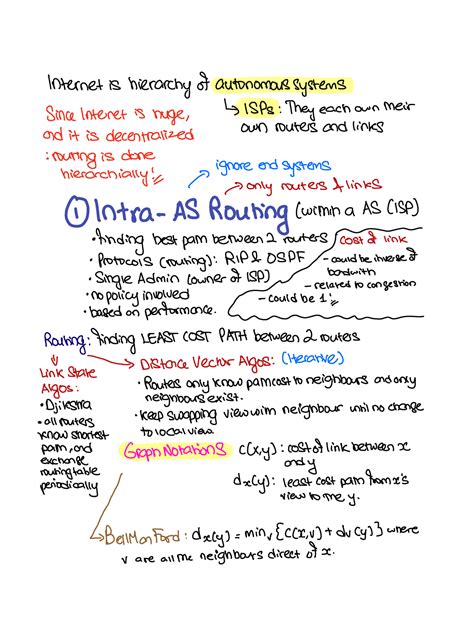 Internet is hierarchy of autonomous systems
↳ ISPs: They each own their
own routers and links
Since Internet is huge,
and it is decentralized
: routing is done
hierarchially!
→ ignore end systems
→ only routers & links
① Intra-AS Routing (within a AS (ISP)
• finding best path between 2 routers
• Protocols (routing): RIP & OSPF
• Single Admin (owner of ISP)
• no policy involved
• based on performance.
cost of link
- could be inverse of
bandwith
- related to congestion
- could be 1!
Routing: finding LEAST COST PATH between 2 routers
Link State
Algos:
• Djikstra
• all routers
know shortest
path, and
exchange
routing table
periodically
→ Distance Vector Algos: (Iterative)
• Routers only know path cost to neighbours and only
neighbours exist.
• keep swapping view with neighbour until no change
to local view.
Graph Notations
c(x,y): cost of link between x
and y
dx(y): least cost path from x's
view to me y.
→ BellManFord: dx(y) = minv {c(x,v) + dv(y)} where
v are all the neighbours direct of x.